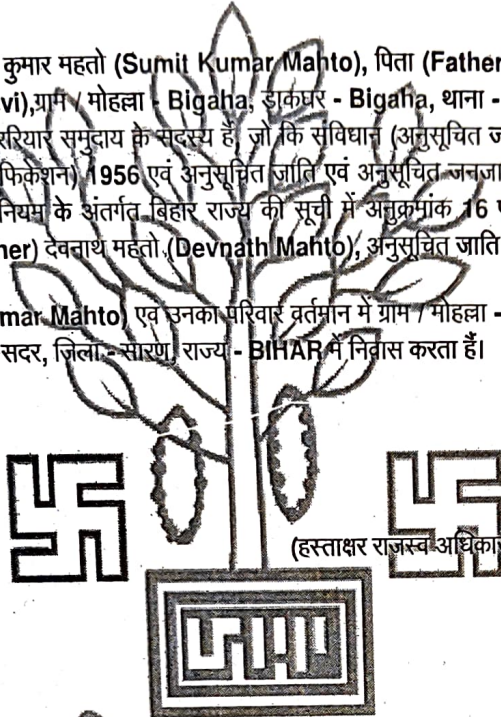 कुमार महतो (Sumit Kumar Mahto), पिता (Father
vi),ग्राम / मोहल्ला - Bigaha, डाकघर - Bigaha, थाना -
ररियार समुदाय के सदस्य हैं, जो कि संविधान (अनुसूचित ज
फिकेशन) 1956 एवं अनुसूचित जाति एवं अनुसूचित जनजा
नियम के अंतर्गत बिहार राज्य की सूची में अनुक्रमांक 16 प
her) देवनाथ महतो (Devnath Mahto), अनुसूचित जाति
mar Mahto) एवं उनका परिवार वर्तमान में ग्राम / मोहल्ला -
सदर, ज़िला - सारण, राज्य - BIHAR में निवास करता हैं।
(हस्ताक्षर राजस्व अधिका